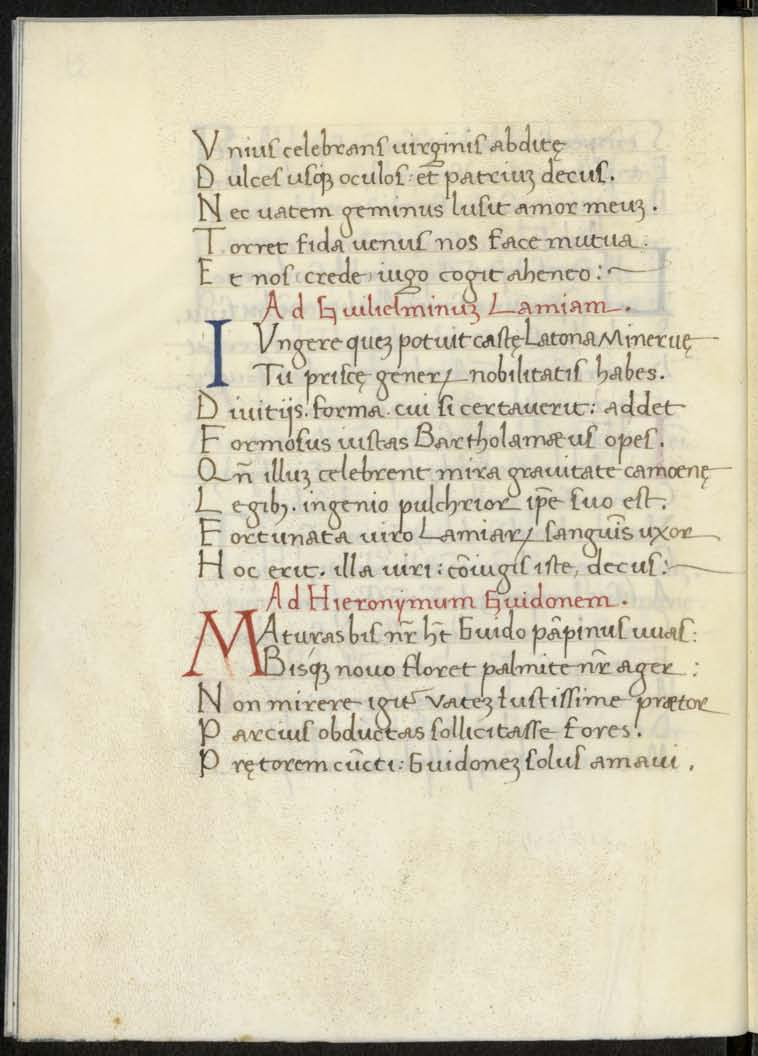 Vnius celebrans uirginis abditę
Dulces usq₃ oculos: et̄ patriuʒ decus.
Nec uatem geminus lusit amor meuʒ.
Torret fida uenus nos face mutua:
Et nos (crede) iugo cogit aheneo:~
Ad Guilielminuʒ Lamiam.
IVngere queʒ potuit castę Latona Mineruę
Tu priscę generꝝ nobilitatis habes.
Diuitijs. forma. cui si certauerit: addet
Formosus iustas Bartholamæus opes.
Qn̄ illuʒ celebrent mira grauitate camoenę
Legibꝫ. ingenio pulchrior ip̄e suo est.
Fortunata uiro Lamiaꝝ sanguīs uxor
Hoc erit. illa uiri: cōiugis iste, decus:~
Ad Hieronymum Guidonem.
MAturas bis nr̄ hēt Guido pāpinus uuas:
Bisq₃ nouo floret palmite nr̄ ager:
Non mirere igit᷑ Vateʒ Iustissime prætor
Parcius obductas sollicitasse fores.
Prętorem cūcti: Guidoneʒ solus amaui.